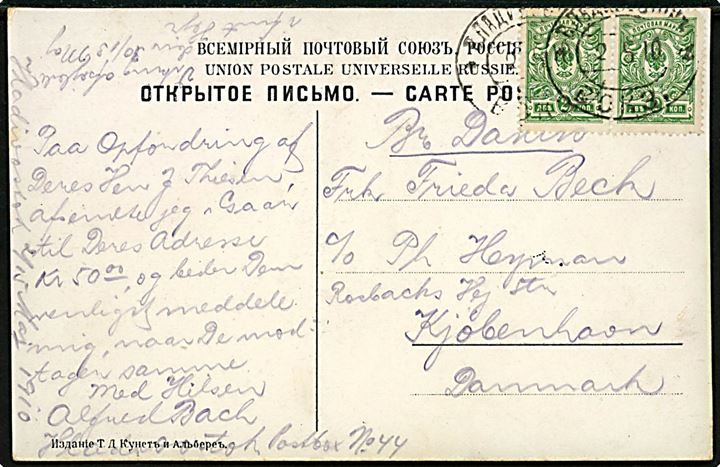 ВСЕМІРНЫЙ ПОЧТОВЫЙ СОЮЗЪ. РОССІЯ
UNION POSTALE UNIVERSELLE RUSSIE.
ОТКРЫТОЕ ПИСЬМО. — CARTE PO
Paa Opfordring af
Deres Hen J Thiesen
afsendte jeg
til Deres Adresse
Kr 50 00, og beder Dem
venligst meddele
mig, naar De mod-
tager samme
Med Hilsen
Alfred Bach
Postbox No 44
Frk Frieda Beck
c/o Ph Heyman
Rosbachs Hej Str
Kjöbenhavn
Danmark
2 КОП.
Изданіе Т. Д. Кунстъ и Альберсъ.
Mai 1910